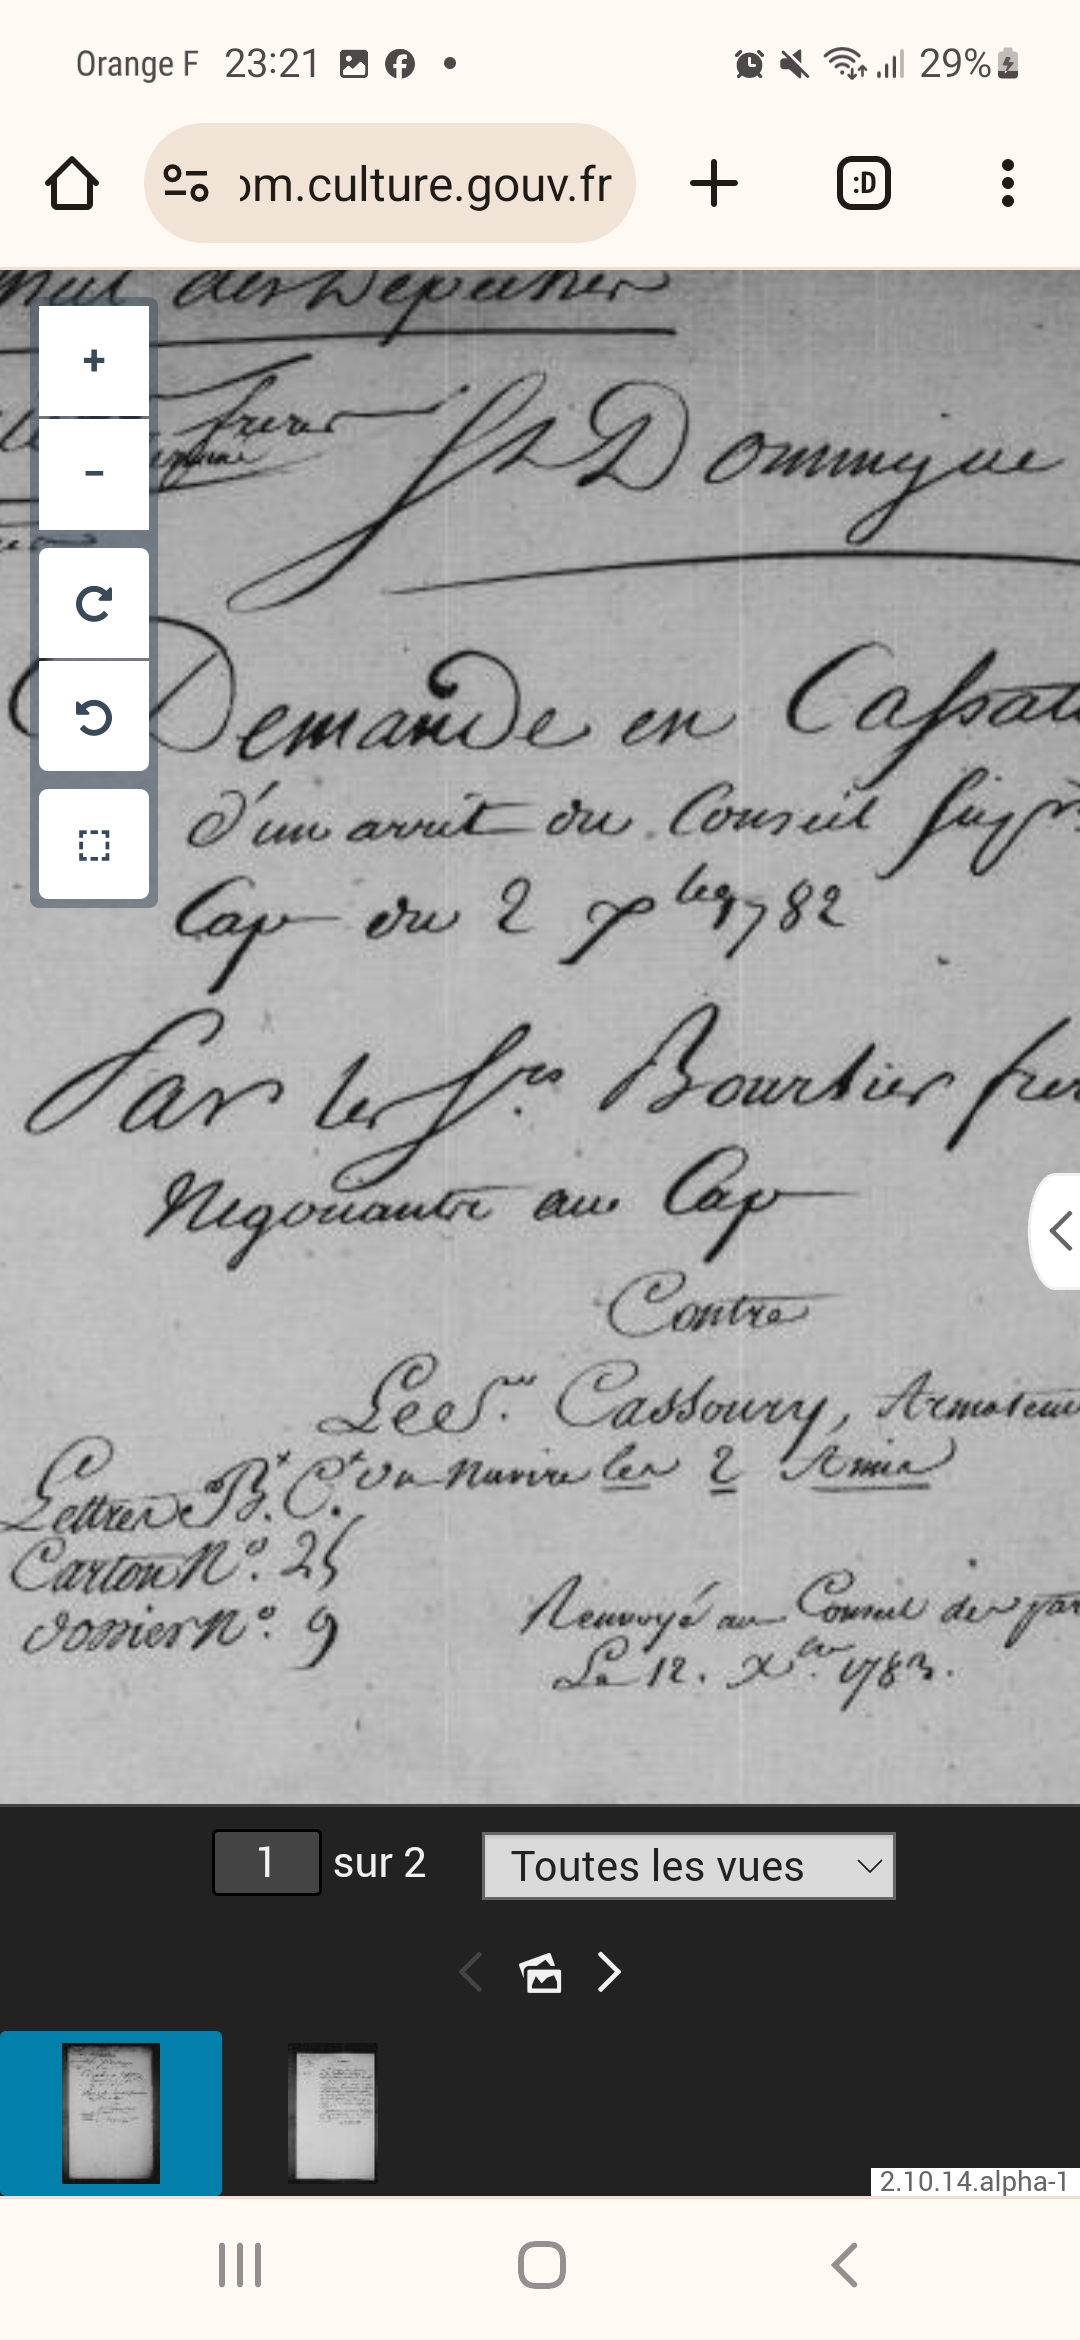 Orange F 23:21 29%
om.culture.gouv.fr
des Depeches
freres
St Domingue
Demande en Cassat
d'un arrit du Conseil Sup.r
Cap du 2 7bre 1782
Par les Srs Bourbier frer
Negociants au Cap
Contre
Les Srs Cassoury, Armateur
du Navire les 2 Amis
Lettres B. C.
Carton No. 25
dossier No. 9
Renvoyé au Conseil des par
Le 12. Xbre 1783.
1 sur 2 Toutes les vues
2.10.14.alpha-1